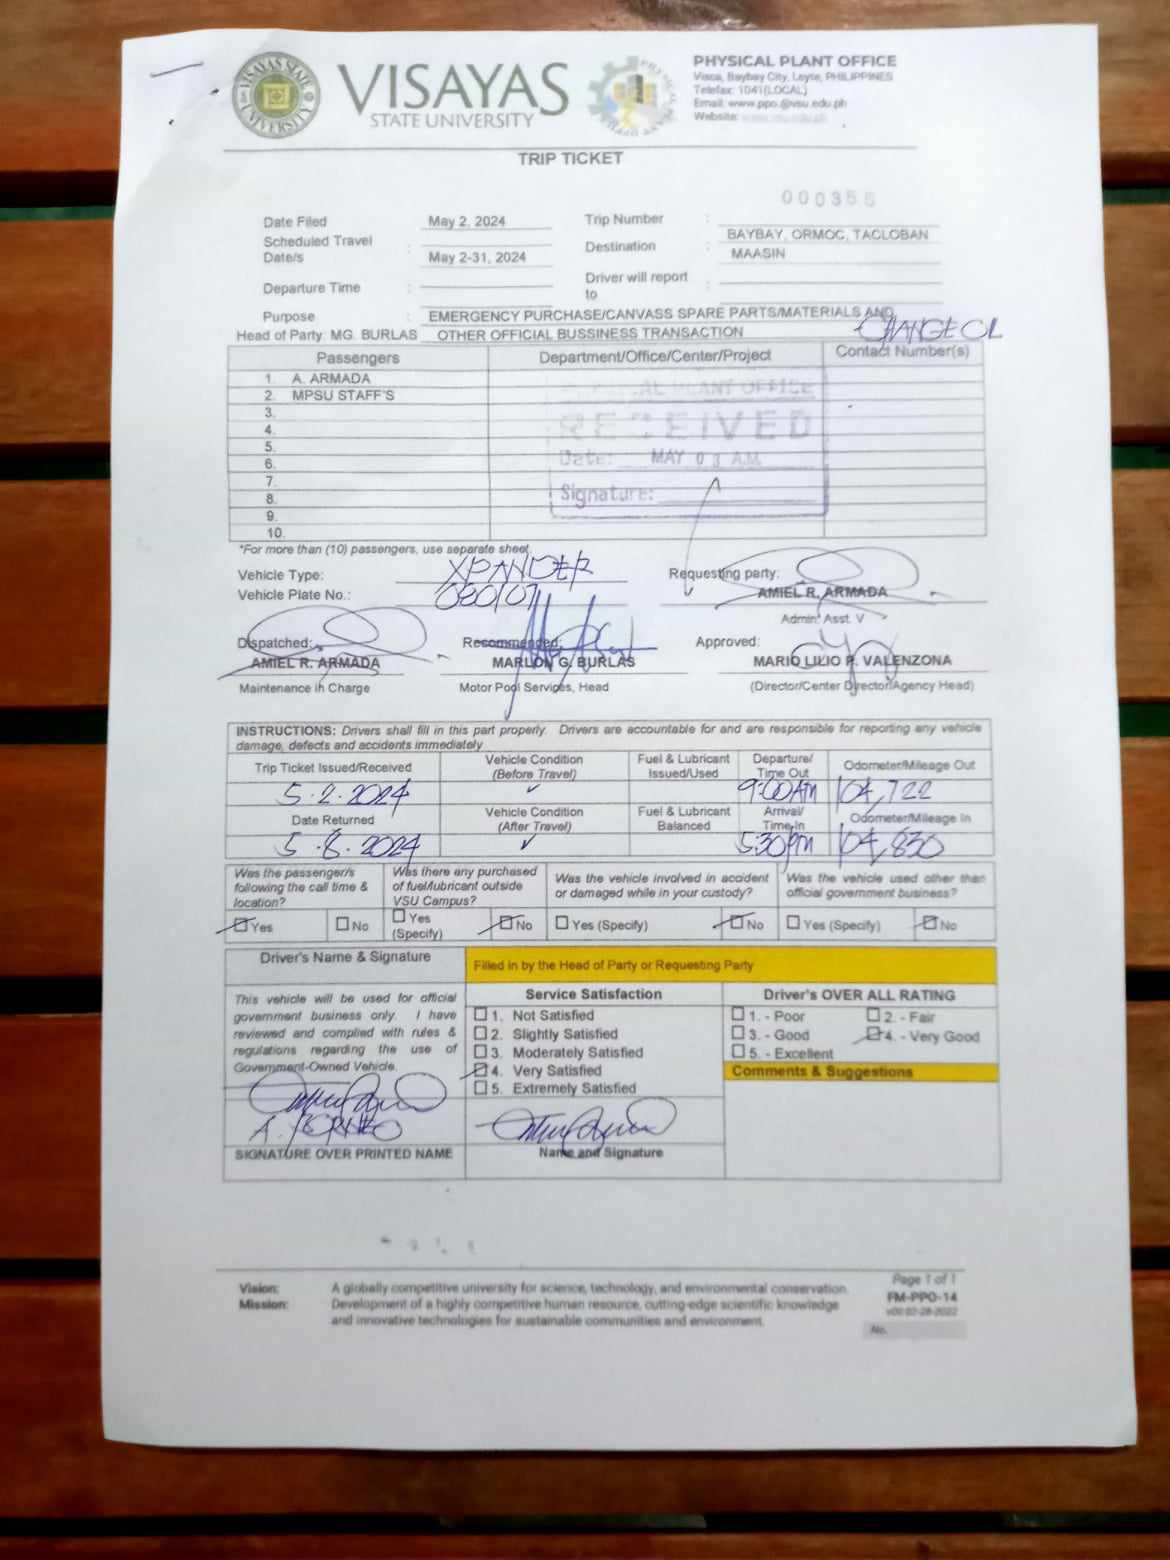 VISAYAS STATE UNIVERSITY
VISAYAS
STATE UNIVERSITY
PHYSICAL PLANT OFFICE
Visca, Baybay City, Leyte, PHILIPPINES
Telefax: 1041(LOCAL)
Email: www.ppo.@vsu.edu.ph
Website:
TRIP TICKET
000355
Date Filed May 2, 2024 Trip Number :
Scheduled Travel Date/s : May 2-31, 2024 Destination : BAYBAY, ORMOC, TACLOBAN
MAASIN
Departure Time : Driver will report to :
Purpose : EMERGENCY PURCHASE/CANVASS SPARE PARTS/MATERIALS AND
Head of Party: MG. BURLAS OTHER OFFICIAL BUSSINESS TRANSACTION CHANGE OL
Passengers Department/Office/Center/Project Contact Number(s)
1. A. ARMADA
2. MPSU STAFF'S
3.
4.
5.
6.
7.
8.
9.
10.
PLANT OFFICE
RECEIVED
Date: MAY 03 A.M.
Signature:
*For more than (10) passengers, use separate sheet.
Vehicle Type: XPANDER
Vehicle Plate No.: 080107
Requesting party:
AMIEL R. ARMADA
Admin. Asst. V
Dispatched: Recommended: Approved:
AMIEL R. ARMADA MARLON G. BURLAS MARIO LILIO P. VALENZONA
Maintenance in Charge Motor Pool Services, Head (Director/Center Director/Agency Head)
INSTRUCTIONS: Drivers shall fill in this part properly. Drivers are accountable for and are responsible for reporting any vehicle
damage, defects and accidents immediately
Trip Ticket Issued/Received Vehicle Condition (Before Travel) Fuel & Lubricant Issued/Used Departure/ Time Out Odometer/Mileage Out
5-2-2024 ✓ 9:00AM 104,722
Date Returned Vehicle Condition (After Travel) Fuel & Lubricant Balanced Arrival/ Time In Odometer/Mileage In
5-8-2024 ✓ 5:30pm 104,830
Was the passenger/s following the call time & location? Was there any purchased of fuel/lubricant outside VSU Campus? Was the vehicle involved in accident or damaged while in your custody? Was the vehicle used other than official government business?
Yes No Yes (Specify) No Yes (Specify) No Yes (Specify) No
Driver's Name & Signature Filled in by the Head of Party or Requesting Party
This vehicle will be used for official
government business only. I have
reviewed and complied with rules &
regulations regarding the use of
Government-Owned Vehicle.
SIGNATURE OVER PRINTED NAME
Service Satisfaction
1. Not Satisfied
2. Slightly Satisfied
3. Moderately Satisfied
4. Very Satisfied
5. Extremely Satisfied
Name and Signature
Driver's OVER ALL RATING
1. - Poor 2. - Fair
3. - Good 4. - Very Good
5. - Excellent
Comments & Suggestions
Vision: A globally competitive university for science, technology, and environmental conservation.
Mission: Development of a highly competitive human resource, cutting-edge scientific knowledge
and innovative technologies for sustainable communities and environment.
Page 1 of 1
FM-PPO-14
v00 02-28-2022
No.